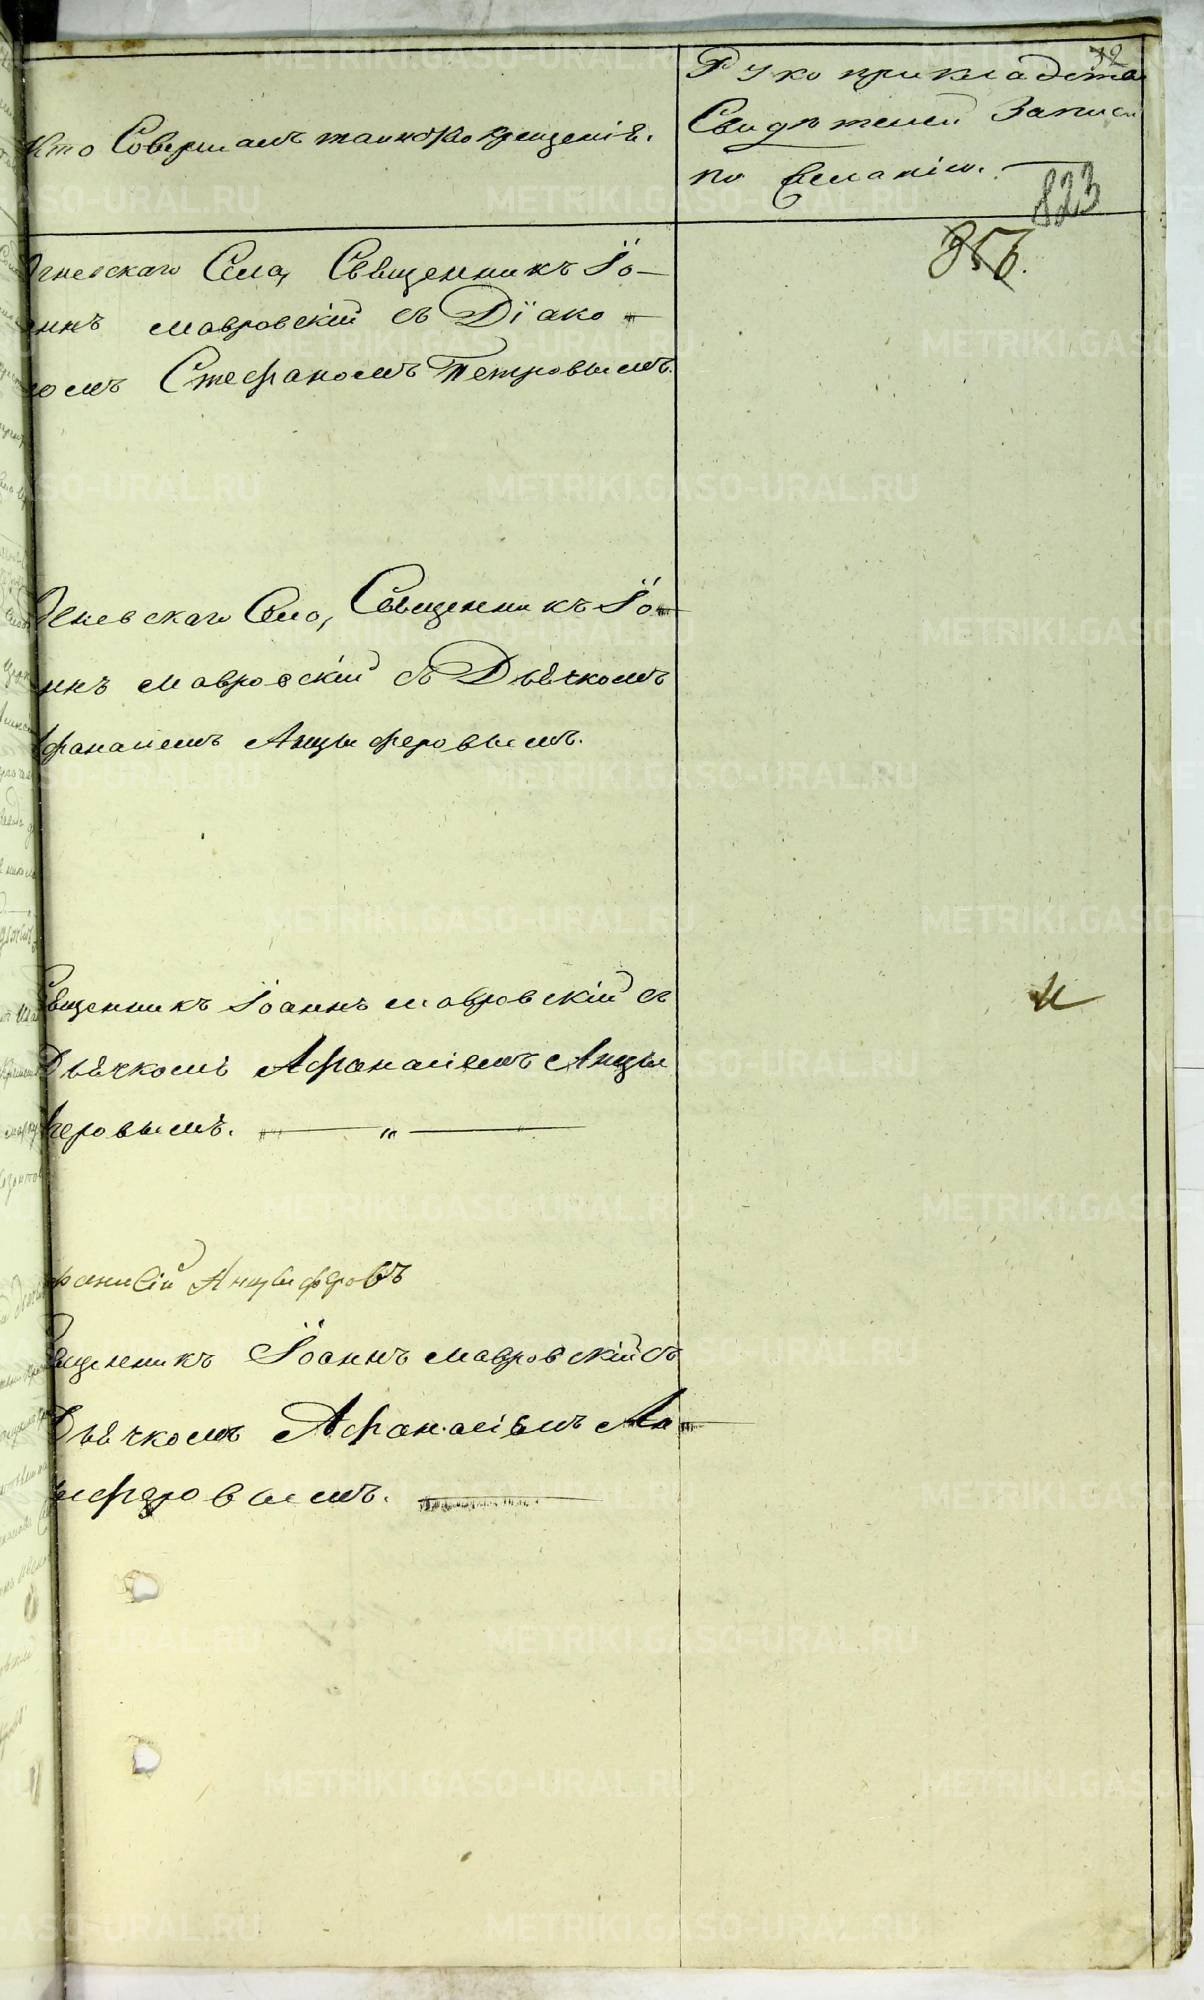 Кто Совершалъ таинство крещенія.
32
Рукоприкладства
Свидѣтелей Записи
по желанію.
823
356.
Огневскаго Села, Священникъ Іо-
аннъ Мавровскій съ Діако-
номъ Стефаномъ Петровымъ.
Огневскаго Села, Священникъ Іо-
аннъ Мавровскій съ Дьячкомъ
Афанасіемъ Анцыферовымъ.
Священникъ Іоаннъ Мавровскій съ
Дьячкомъ Афанасіемъ Анцы
феровымъ.
фанасій Анцыферовъ
Священникъ Іоаннъ Мавровскій съ
Дьячкомъ Афанасіемъ Ан-
цыферовымъ.
METRIKI.GASO-URAL.RU